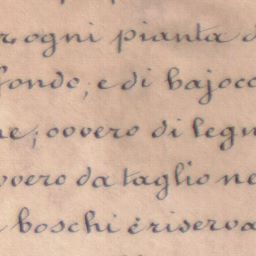 ogni pianta d
fondo, e di bajocc
ne; ovvero di legn
vvero da taglio ne
boschi è riserva